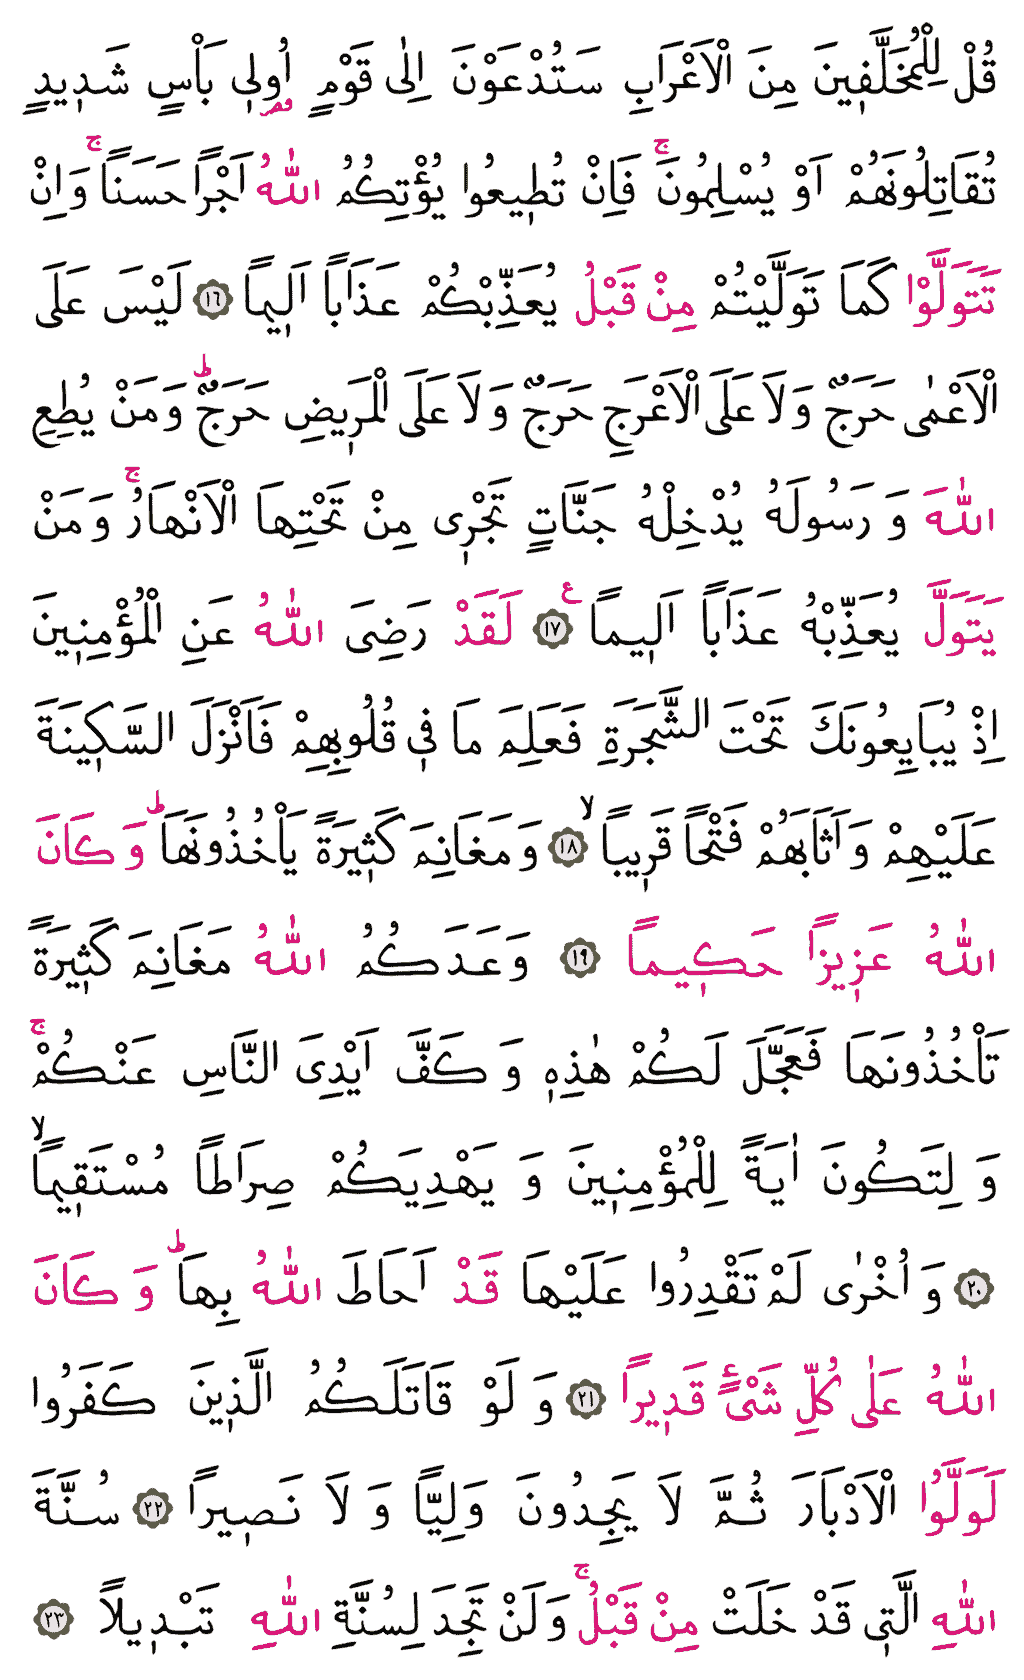 قُلْ لِلْمُخَلَّفٖينَ مِنَ الْاَعْرَابِ سَتُدْعَوْنَ اِلٰى قَوْمٍ اُولٖى بَاْسٍ شَدٖيدٍ
تُقَاتِلُونَهُمْ اَوْ يُسْلِمُونَۚ فَاِنْ تُطٖيعُوا يُؤْتِكُمُ اللّٰهُ اَجْرًا حَسَنًاۚ وَاِنْ
تَتَوَلَّوْا كَمَا تَوَلَّيْتُمْ مِنْ قَبْلُ يُعَذِّبْكُمْ عَذَابًا اَلٖيمًا ﴿١٦﴾ لَيْسَ عَلَى
الْاَعْمٰى حَرَجٌ وَلَا عَلَى الْاَعْرَجِ حَرَجٌ وَلَا عَلَى الْمَرٖيضِ حَرَجٌؕ وَمَنْ يُطِعِ
اللّٰهَ وَرَسُولَهُ يُدْخِلْهُ جَنَّاتٍ تَجْرٖى مِنْ تَحْتِهَا الْاَنْهَارُۚ وَمَنْ
يَتَوَلَّ يُعَذِّبْهُ عَذَابًا اَلٖيمًا ﴿١٧﴾ ع لَقَدْ رَضِىَ اللّٰهُ عَنِ الْمُؤْمِنٖينَ
اِذْ يُبَايِعُونَكَ تَحْتَ الشَّجَرَةِ فَعَلِمَ مَا فٖى قُلُوبِهِمْ فَاَنْزَلَ السَّكٖينَةَ
عَلَيْهِمْ وَاَثَابَهُمْ فَتْحًا قَرٖيبًاۙ ﴿١٨﴾ وَمَغَانِمَ كَثٖيرَةً يَاْخُذُونَهَاؕ وَكَانَ
اللّٰهُ عَزٖيزًا حَكٖيمًا ﴿١٩﴾ وَعَدَكُمُ اللّٰهُ مَغَانِمَ كَثٖيرَةً
تَاْخُذُونَهَا فَعَجَّلَ لَكُمْ هٰذِهٖ وَكَفَّ اَيْدِىَ النَّاسِ عَنْكُمْۚ
وَلِتَكُونَ اٰيَةً لِلْمُؤْمِنٖينَ وَيَهْدِيَكُمْ صِرَاطًا مُسْتَقٖيمًاۙ
﴿٢٠﴾ وَاُخْرٰى لَمْ تَقْدِرُوا عَلَيْهَا قَدْ اَحَاطَ اللّٰهُ بِهَاؕ وَكَانَ
اللّٰهُ عَلٰى كُلِّ شَیْءٍ قَدٖيرًا ﴿٢١﴾ وَلَوْ قَاتَلَكُمُ الَّذٖينَ كَفَرُوا
لَوَلَّوُا الْاَدْبَارَ ثُمَّ لَا يَجِدُونَ وَلِيًّا وَلَا نَصٖيرًا ﴿٢٢﴾ سُنَّةَ
اللّٰهِ الَّتٖى قَدْ خَلَتْ مِنْ قَبْلُۚ وَلَنْ تَجِدَ لِسُنَّةِ اللّٰهِ تَبْدٖيلًا ﴿٢٣﴾